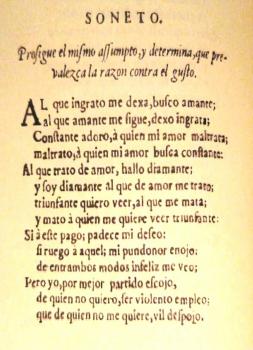 SONETO.
Prosigue el mismo assumpto, y determina, que pre-
valezca la razon contra el gusto.
AL que ingrato me dexa, busco amante;
al que amante me sigue, dexo ingrata;
Constante adoro, à quien mi amor maltrata;
maltrato, à quien mi amor busca constante:
Al que trato de amor, hallo diamante;
y soy diamante al que de amor me trata;
triunfante quiero veer, al que me mata;
y mato à quien me quiere veer triunfante:
Si à este pago; padece mi deseo:
si ruego à aquel; mi pundonor enojo:
de entrambos modos infeliz me veo;
Pero yo, por mejor partido escojo,
de quien no quiero, ser violento empleo;
que de quien no me quiere, vil despojo.